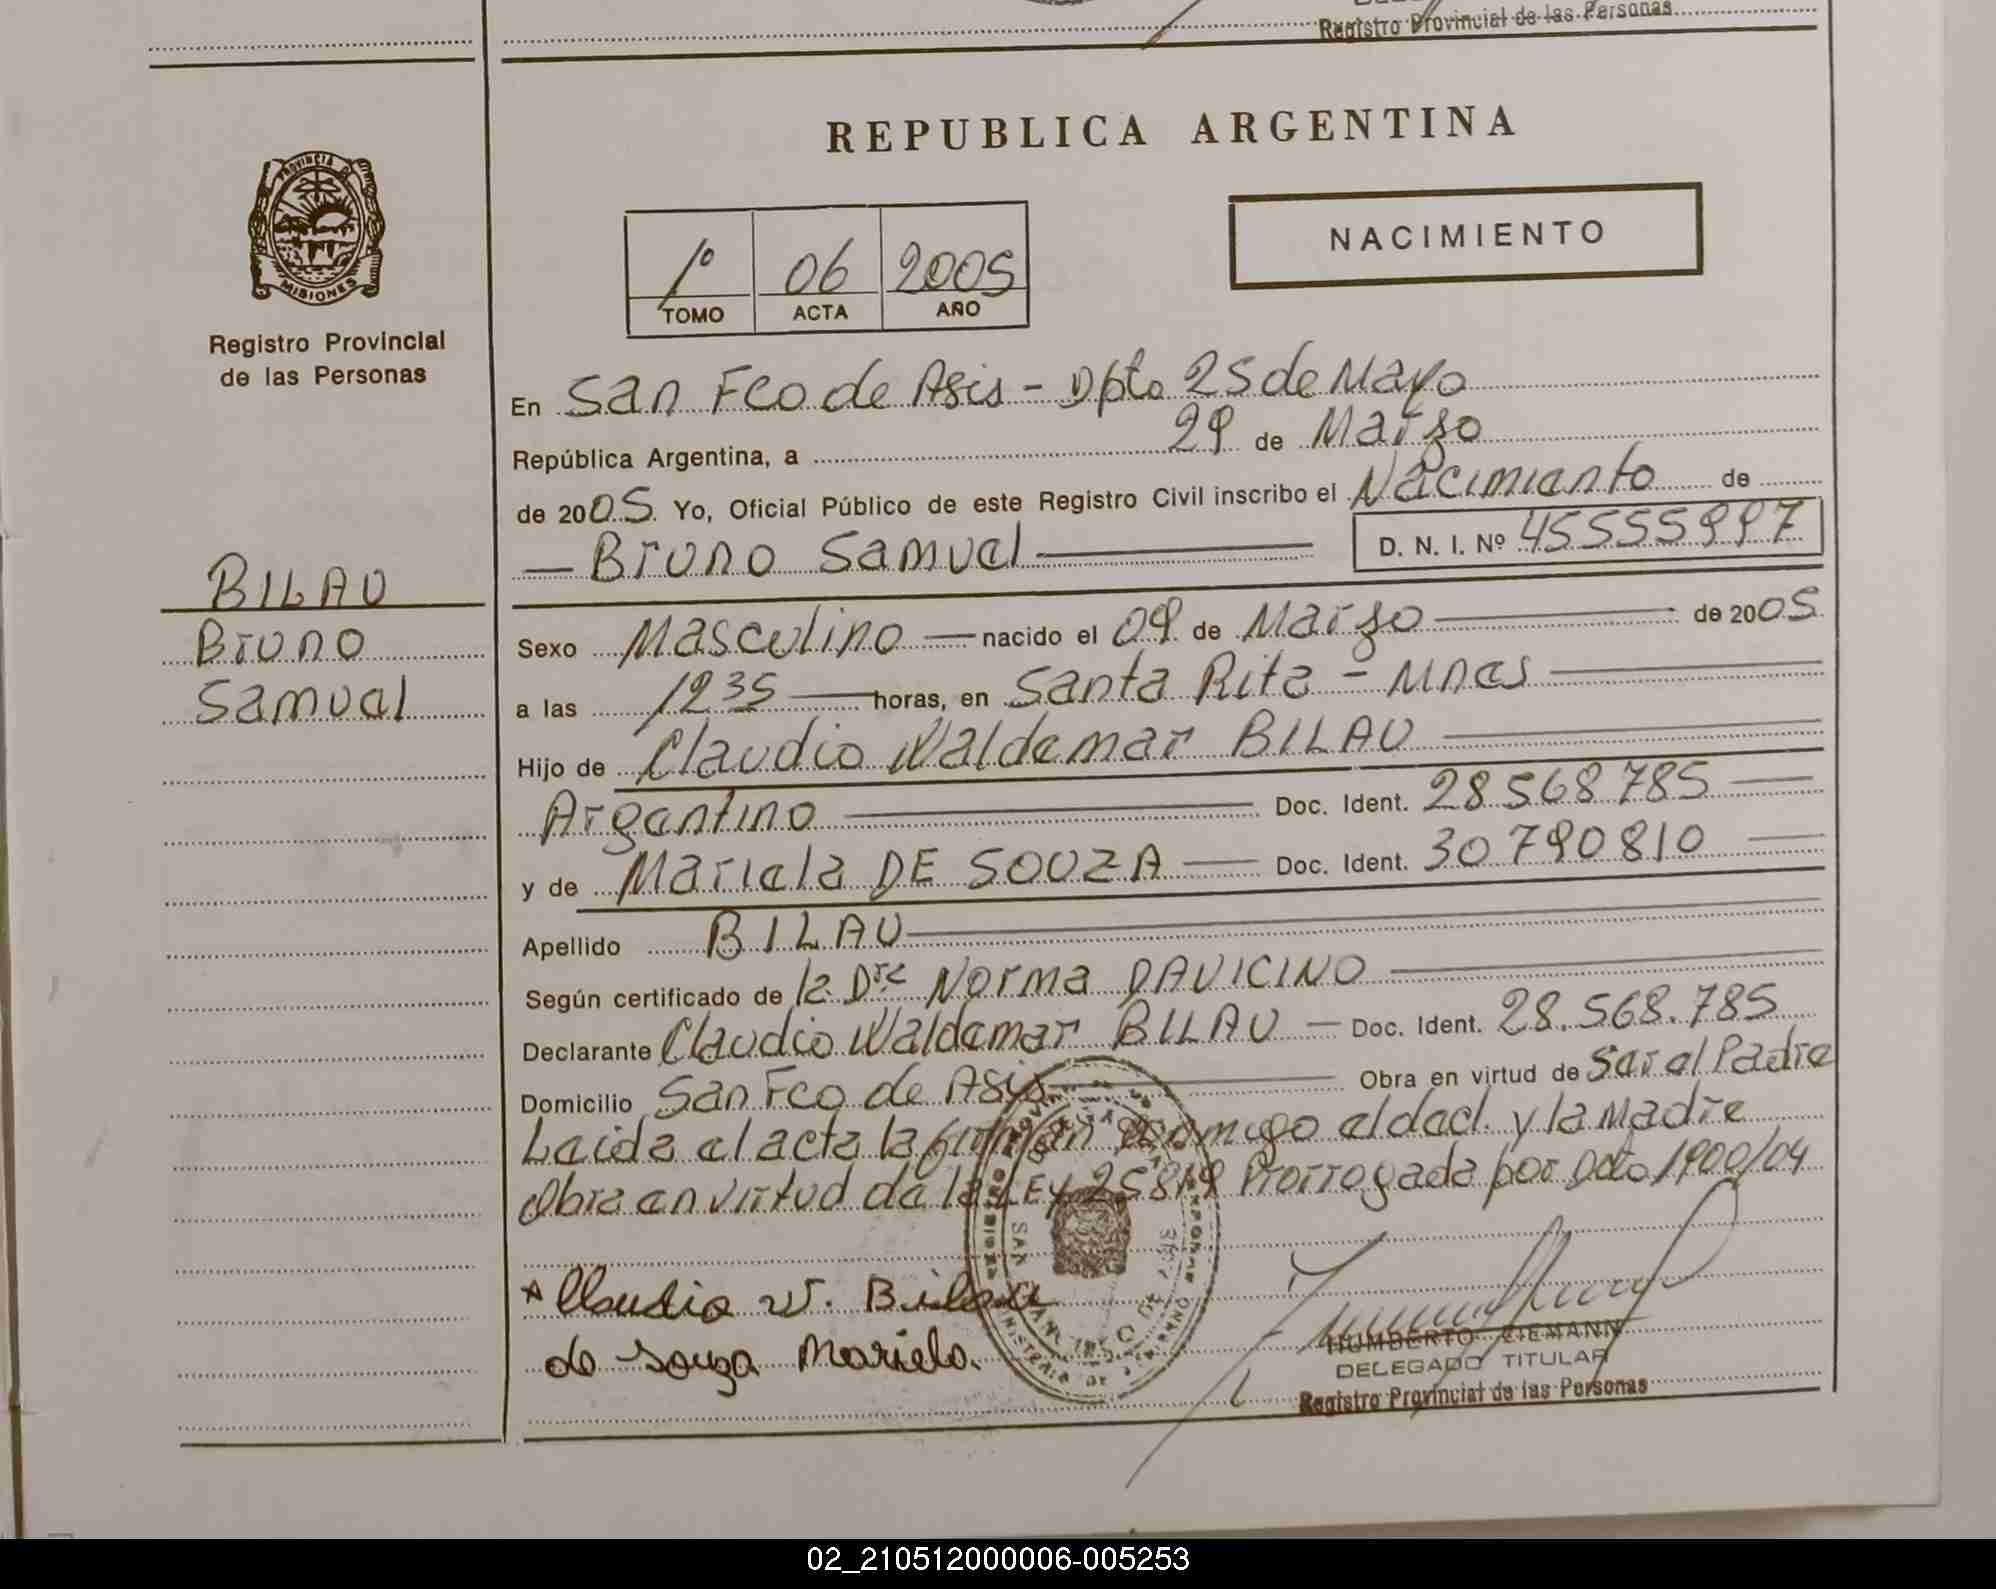 Registro Provincial de las Personas
PROVINCIA DE
MISIONES
Registro Provincial
de las Personas
BILAU
Bruno
Samuel
REPUBLICA ARGENTINA
NACIMIENTO
1º 06 2005
TOMO ACTA AÑO
En San Fco de Asis - Dpto 25 de Mayo
República Argentina, a 29 de Marzo
de 2005. Yo, Oficial Público de este Registro Civil inscribo el Nacimiento de
Bruno Samuel D. N. I. Nº 45555997
Sexo Masculino nacido el 09 de Marzo de 2005
a las 12 35 horas, en Santa Rita - Mnes
Hijo de Claudio Waldemar BILAU
Argentino Doc. Ident. 28 568 785
y de Mariela DE SOUZA Doc. Ident. 30 790 810
Apellido BILAU
Según certificado de la Dra Norma DAVICINO
Declarante Claudio Waldemar BILAU Doc. Ident. 28.568.785
Domicilio San Fco de Asis Obra en virtud de Ser el Padre
Leida el acta la firman conmigo el decl. y la Madre
Obra en virtud de la LEY 25819 Prorrogada por Dcto 1900/04
Claudio W. Bilau
de Souza Mariela.
HUMBERTO ZIEMANN
DELEGADO TITULAR
Registro Provincial de las Personas
02_210512000006-005253